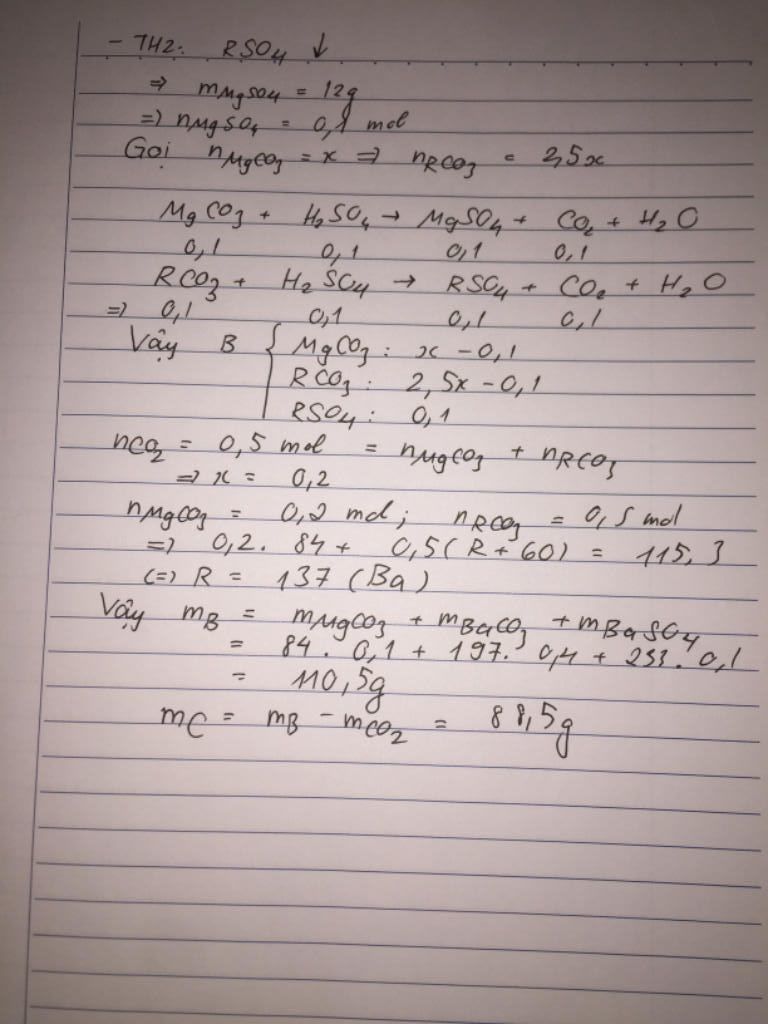 - TH2: RSO4 ↓
=> mMgSO4 = 12g
=> nMgSO4 = 0,1 mol
Gọi nMgCO3 = x => nRCO3 = 2,5x
MgCO3 + H2SO4 → MgSO4 + CO2 + H2O
0,1 0,1 0,1 0,1
RCO3 + H2SO4 → RSO4 + CO2 + H2O
=> 0,1 0,1 0,1 0,1
Vậy B { MgCO3: x - 0,1
RCO3: 2,5x - 0,1
RSO4: 0,1
nCO2 = 0,5 mol = nMgCO3 + nRCO3
=> x = 0,2
nMgCO3 = 0,2 mol; nRCO3 = 0,5 mol
=> 0,2. 84 + 0,5(R + 60) = 115,3
(=) R = 137 (Ba)
Vậy mB = mMgCO3 + mBaCO3 + mBaSO4
= 84. 0,1 + 197. 0,4 + 233. 0,1
= 110,5g
mC = mB - mCO2 = 88,5g